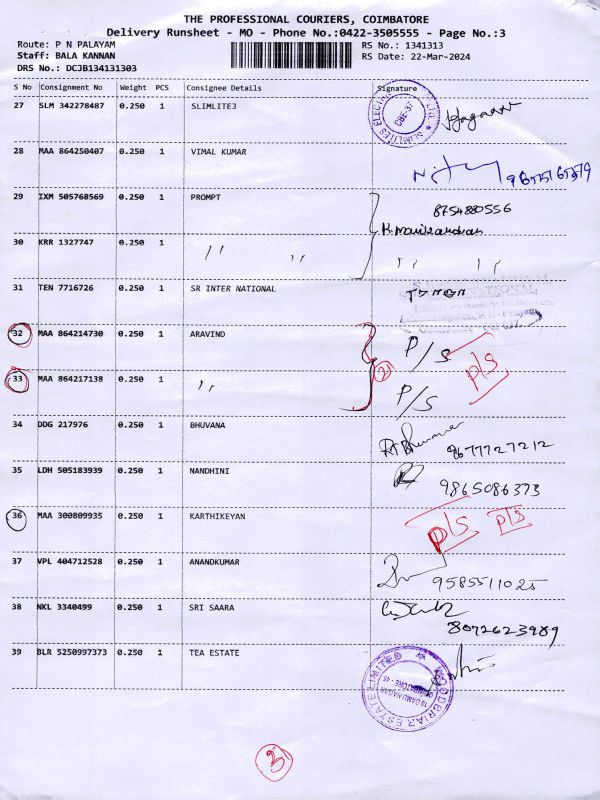 THE PROFESSIONAL COURIERS, COIMBATORE
Delivery Runsheet - MO - Phone No.:0422-3505555 - Page No.:3
Route: P N PALAYAM
Staff: BALA KANNAN
DRS No.: DCJB134131303
RS No.: 1341313
RS Date: 22-Mar-2024
S No Consignment No Weight PCS Consignee Details Signature
27 SLM 342278487 0.250 1 SLIMLITEJ
CBE-37
28 MAA 864250407 0.250 1 VIMAL KUMAR
29 IXM 505768569 0.250 1 PROMPT 8754880556
K. Manikandan
30 KRR 1327747 0.250 1 ,, ,, ,, ,,
31 TEN 7716726 0.250 1 SR INTER NATIONAL
32 MAA 864214730 0.250 1 ARAVIND P/S P/S
2
33 MAA 864217138 0.250 1 ,, P/S
34 DDG 217976 0.250 1 BHUVANA 9677727212
35 LDH 505183939 0.250 1 NANDHINI 9865086373
36 MAA 300809935 0.250 1 KARTHIKEYAN P/S P/S
37 VPL 404712528 0.250 1 ANANDKUMAR 9585511025
38 NKL 3340499 0.250 1 SRI SAARA 8072623989
39 BLR 5250997373 0.250 1 TEA ESTATE
WOODBRIAR ESTATE LIMITED
10 DAMU NAGAR
COIMBATORE - 45
3